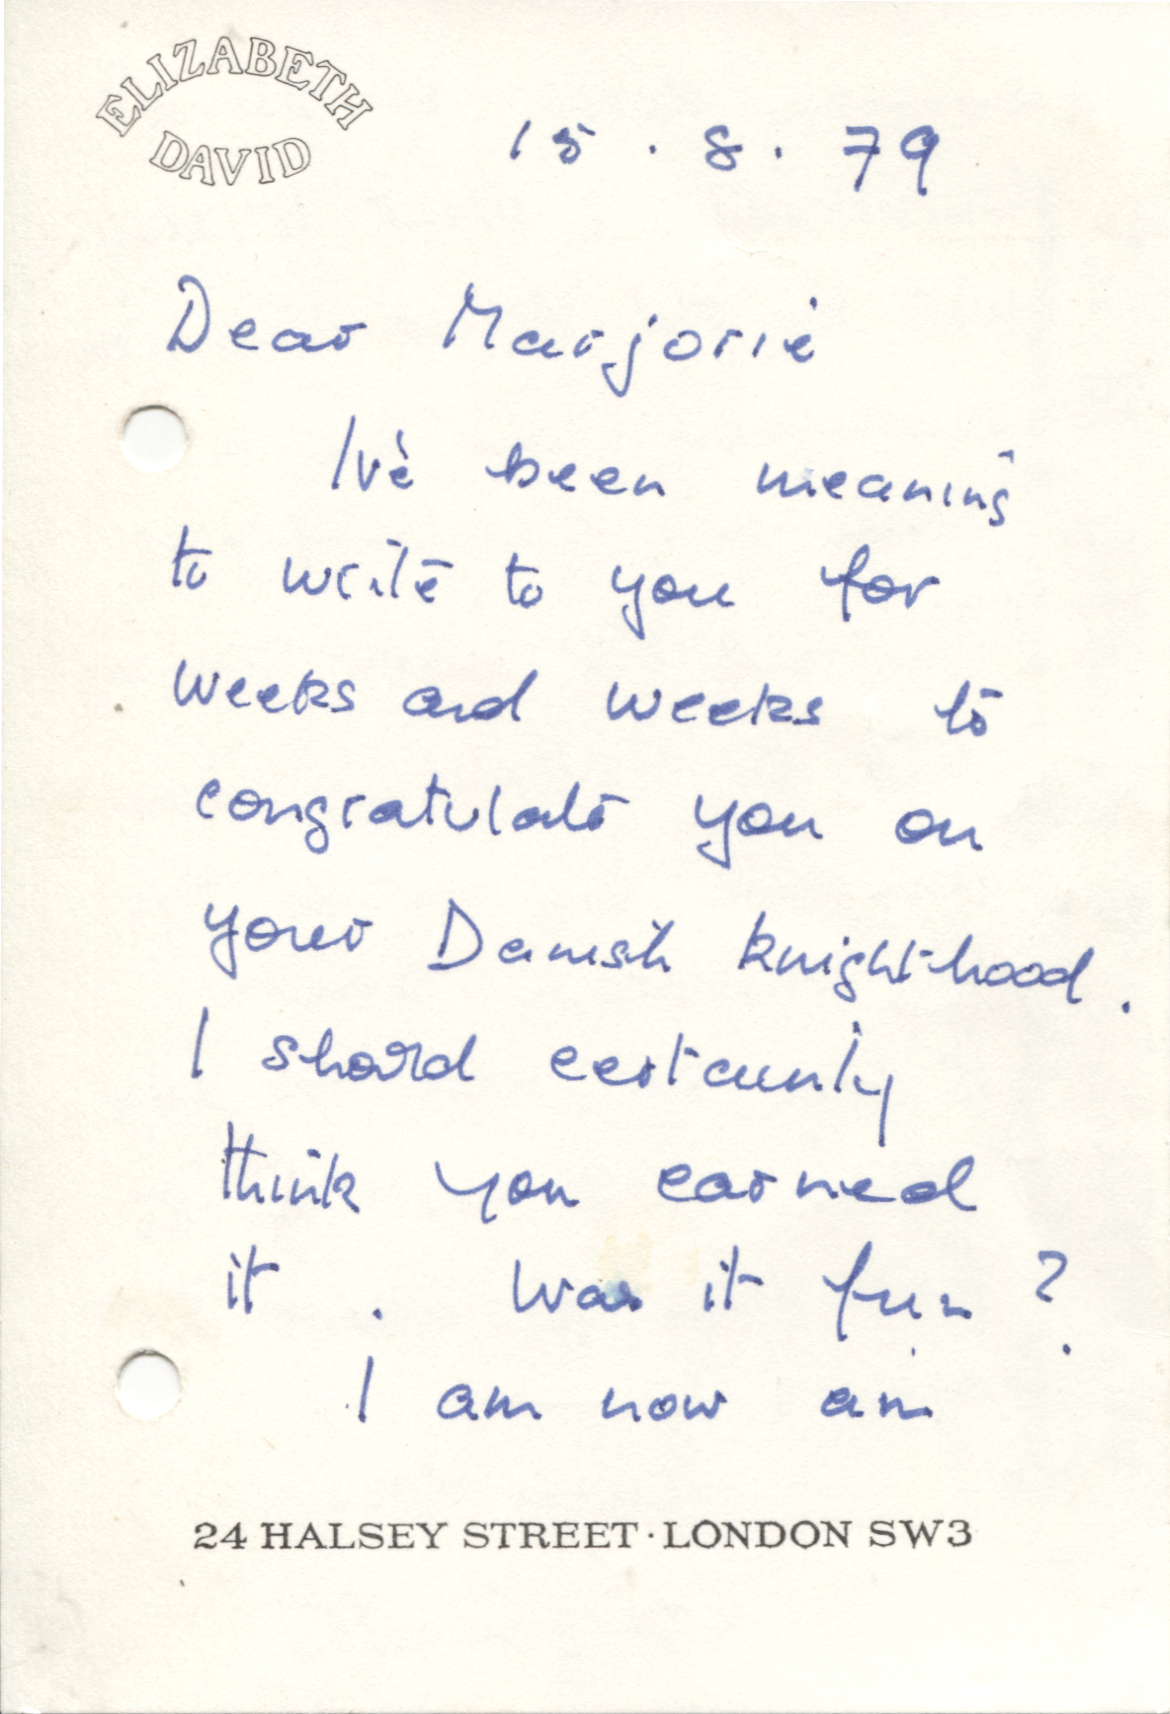 ELIZABETH
DAVID
15.8.79
Dear Marjorie
I've been meaning
to write to you for
weeks and weeks to
congratulate you on
your Danish knighthood.
I should certainly
think you earned
it. Was it fun?
I am now an
24 HALSEY STREET · LONDON SW3